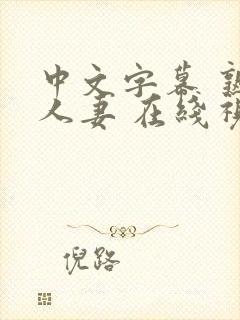 中文字幕
人妻 在线
倪路